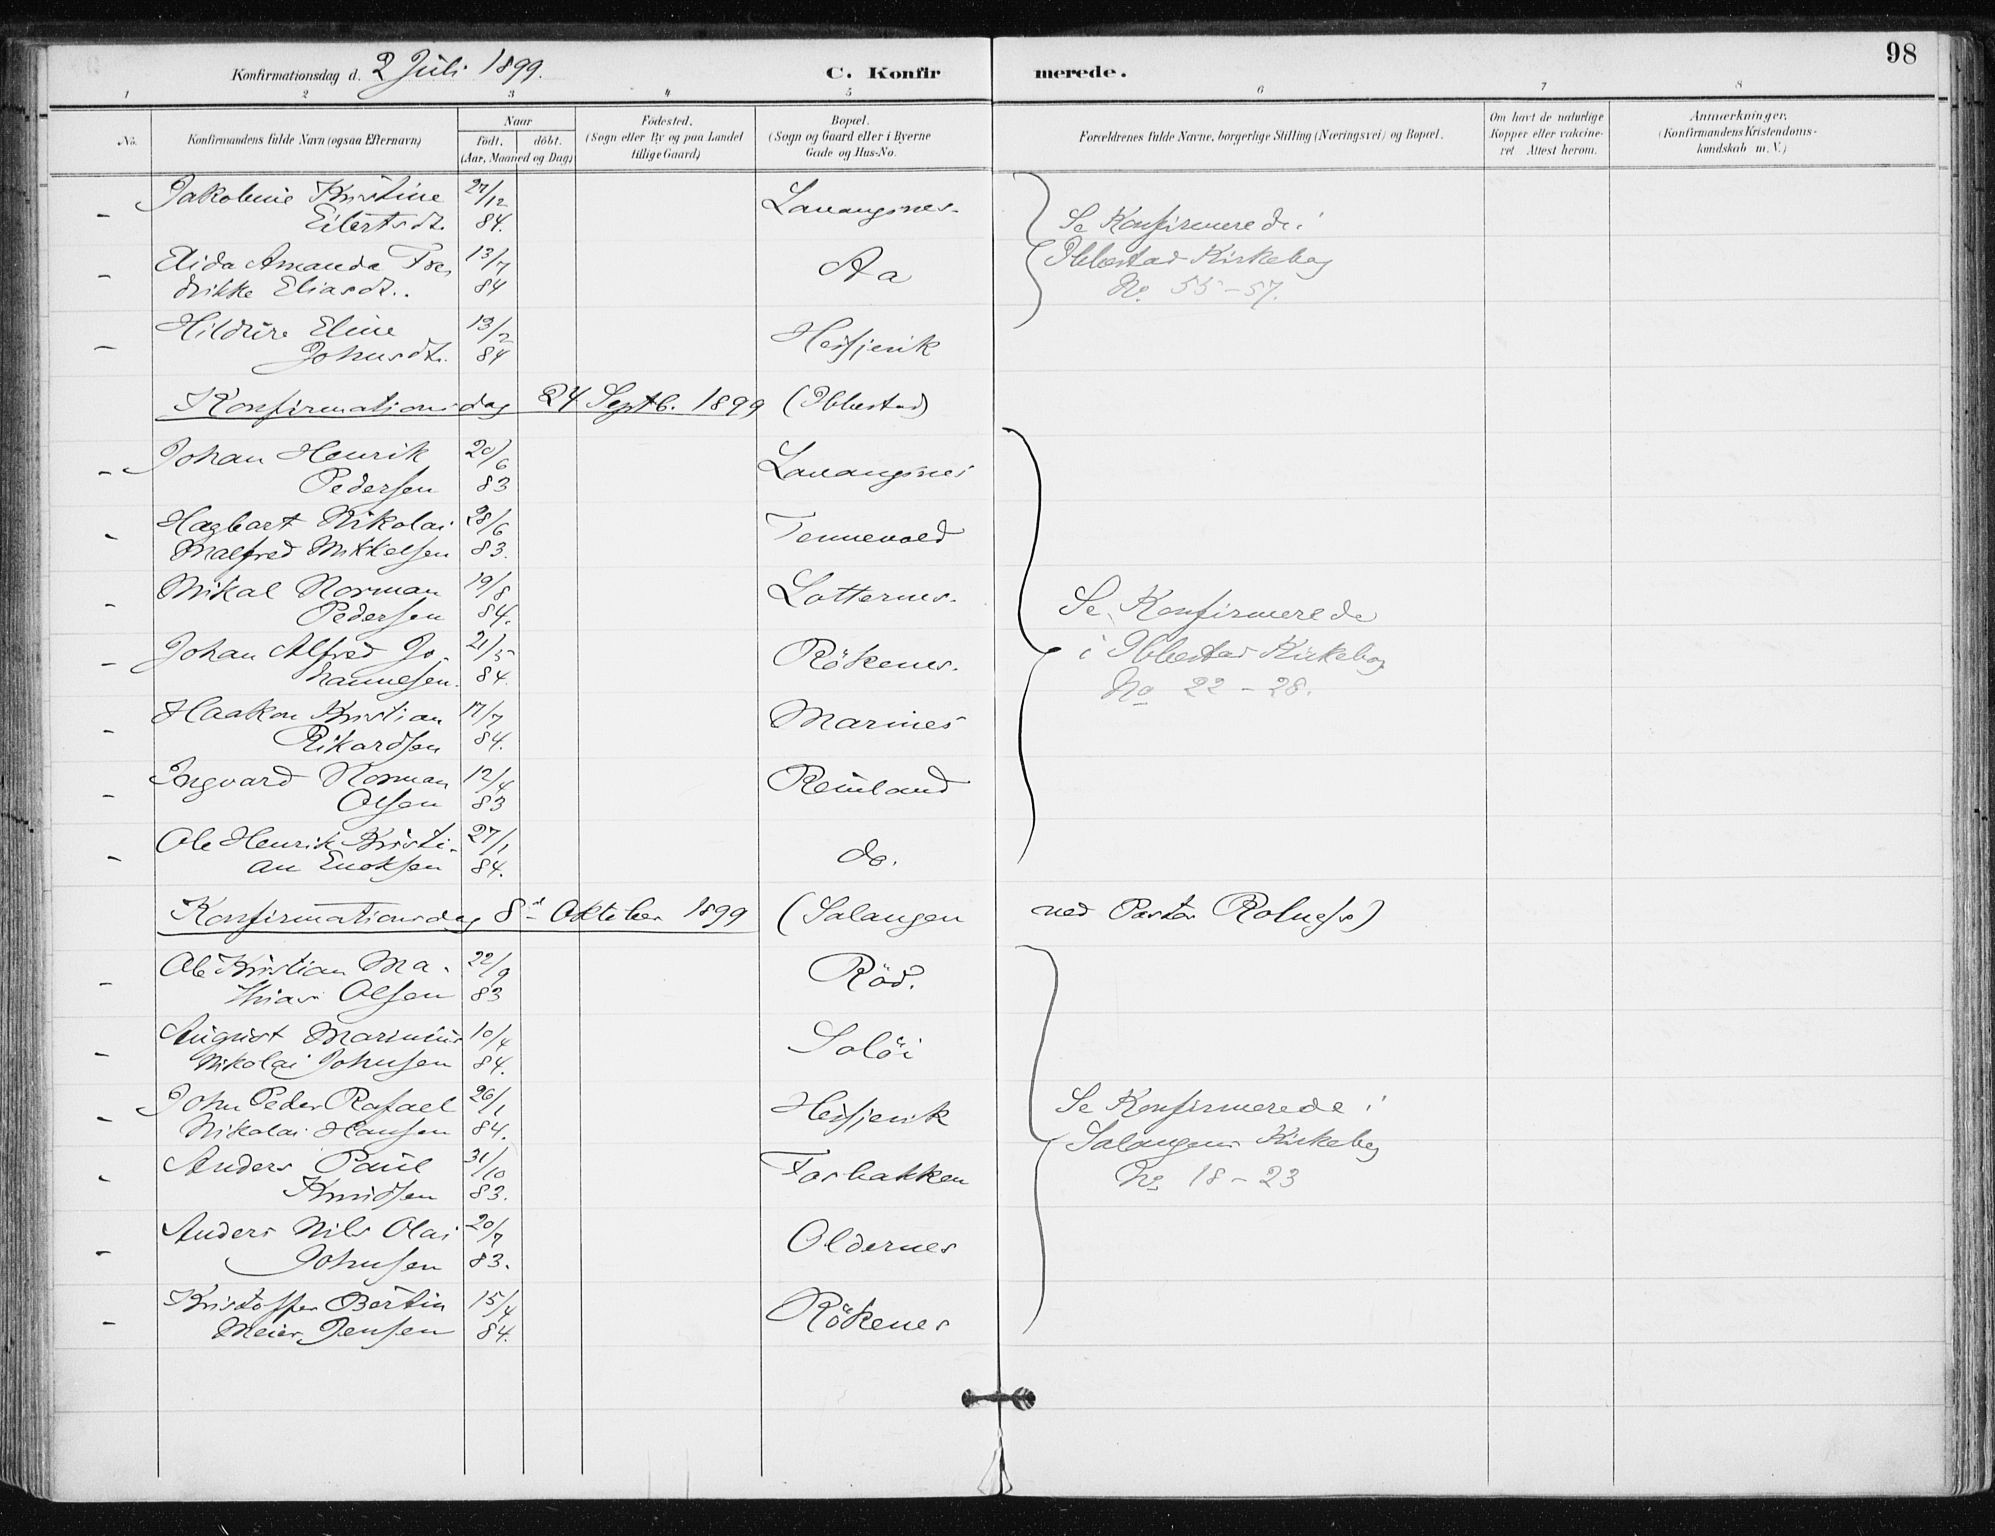 98
Konfirmationsdag d. 2 Juli 1899.
C. Konfirmerede.
1 2 3 4 5 6 7 8
No.
Konfirmandens fulde Navn (ogsaa Efternavn)
Naar
födt. döbt.
(Aar, Maaned og Dag)
Födested.
(Sogn eller By og paa Landet
tillige Gaard)
Bopæl.
(Sogn og Gaard eller i Byerne
Gade og Hus-No.
Forældrenes fulde Navne, borgerlige Stilling (Næringsvei) og Bopæl.
Om havt de naturlige
Kopper eller vakcine-
ret Attest herom.
Anmærkninger.
(Konfirmandens Kristendoms-
kundskab m. V.)
- Jakobine Kristine 27/12 Lavangsnes.
Eilertsdt. 84.
- Elida Amanda Fre- 13/7 Aa
drikke Eliasdt. 84
- Hildur Eline 13/2 Hesfjevik
Johnsdt. 84
Se Konfirmerede i
Ibbestad Kirkebog
No 55-57.
Konfirmationsdag 24 Septb. 1899 (Ibbestad)
- Johan Henrik 20/6 Lavangsnes
Pedersen 83
- Hagbart Nikolai 28/6 Tennevold
Malfred Mikkelsen 83.
- Mikal Norman 19/8 Lotternes.
Pedersen 84.
- Johan Alfred Jo- 21/5 Rökenes.
hannesen. 84.
- Haakon Kristian 17/7 Marines
Rikardsen 84.
- Ingvard Norman 12/4 Reinland
Olsen 83
- Ole Henrik Kristi- 27/1 do.
an Enoksen 84.
Se Konfirmerede
i Ibbestad Kirkebog
No 22-28.
Konfirmationsdag 8d Oktober 1899 (Salangen ved Pastor Rolness)
- Ole Kristian Ma- 22/9 Röd.
thias Olsen 83
- August Marinius 10/4 Solöi
Nikolai Johnsen 84.
- John Peder Rafael 26/1 Hesfjevik
Nikolai Hansen 84.
- Anders Paul 31/10 Forbakken
Knudsen 83.
- Anders Nils Olai 20/7 Oldernes
Johnsen 83.
- Kristoffer Bertin 15/4 Rökenes
Meier Jensen 84.
Se Konfirmerede i
Salangens Kirkebog
No 18-23